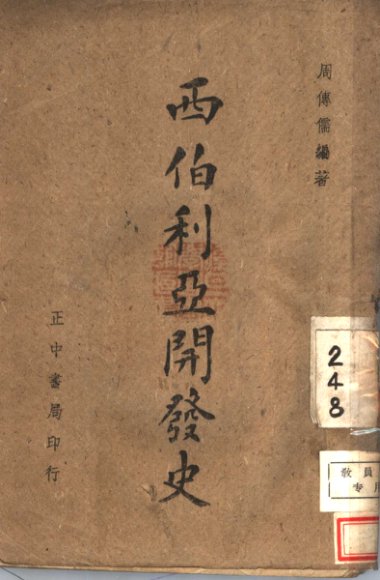 周傳儒編著
西伯利亞開發史
正中書局印行
248
教員
专用